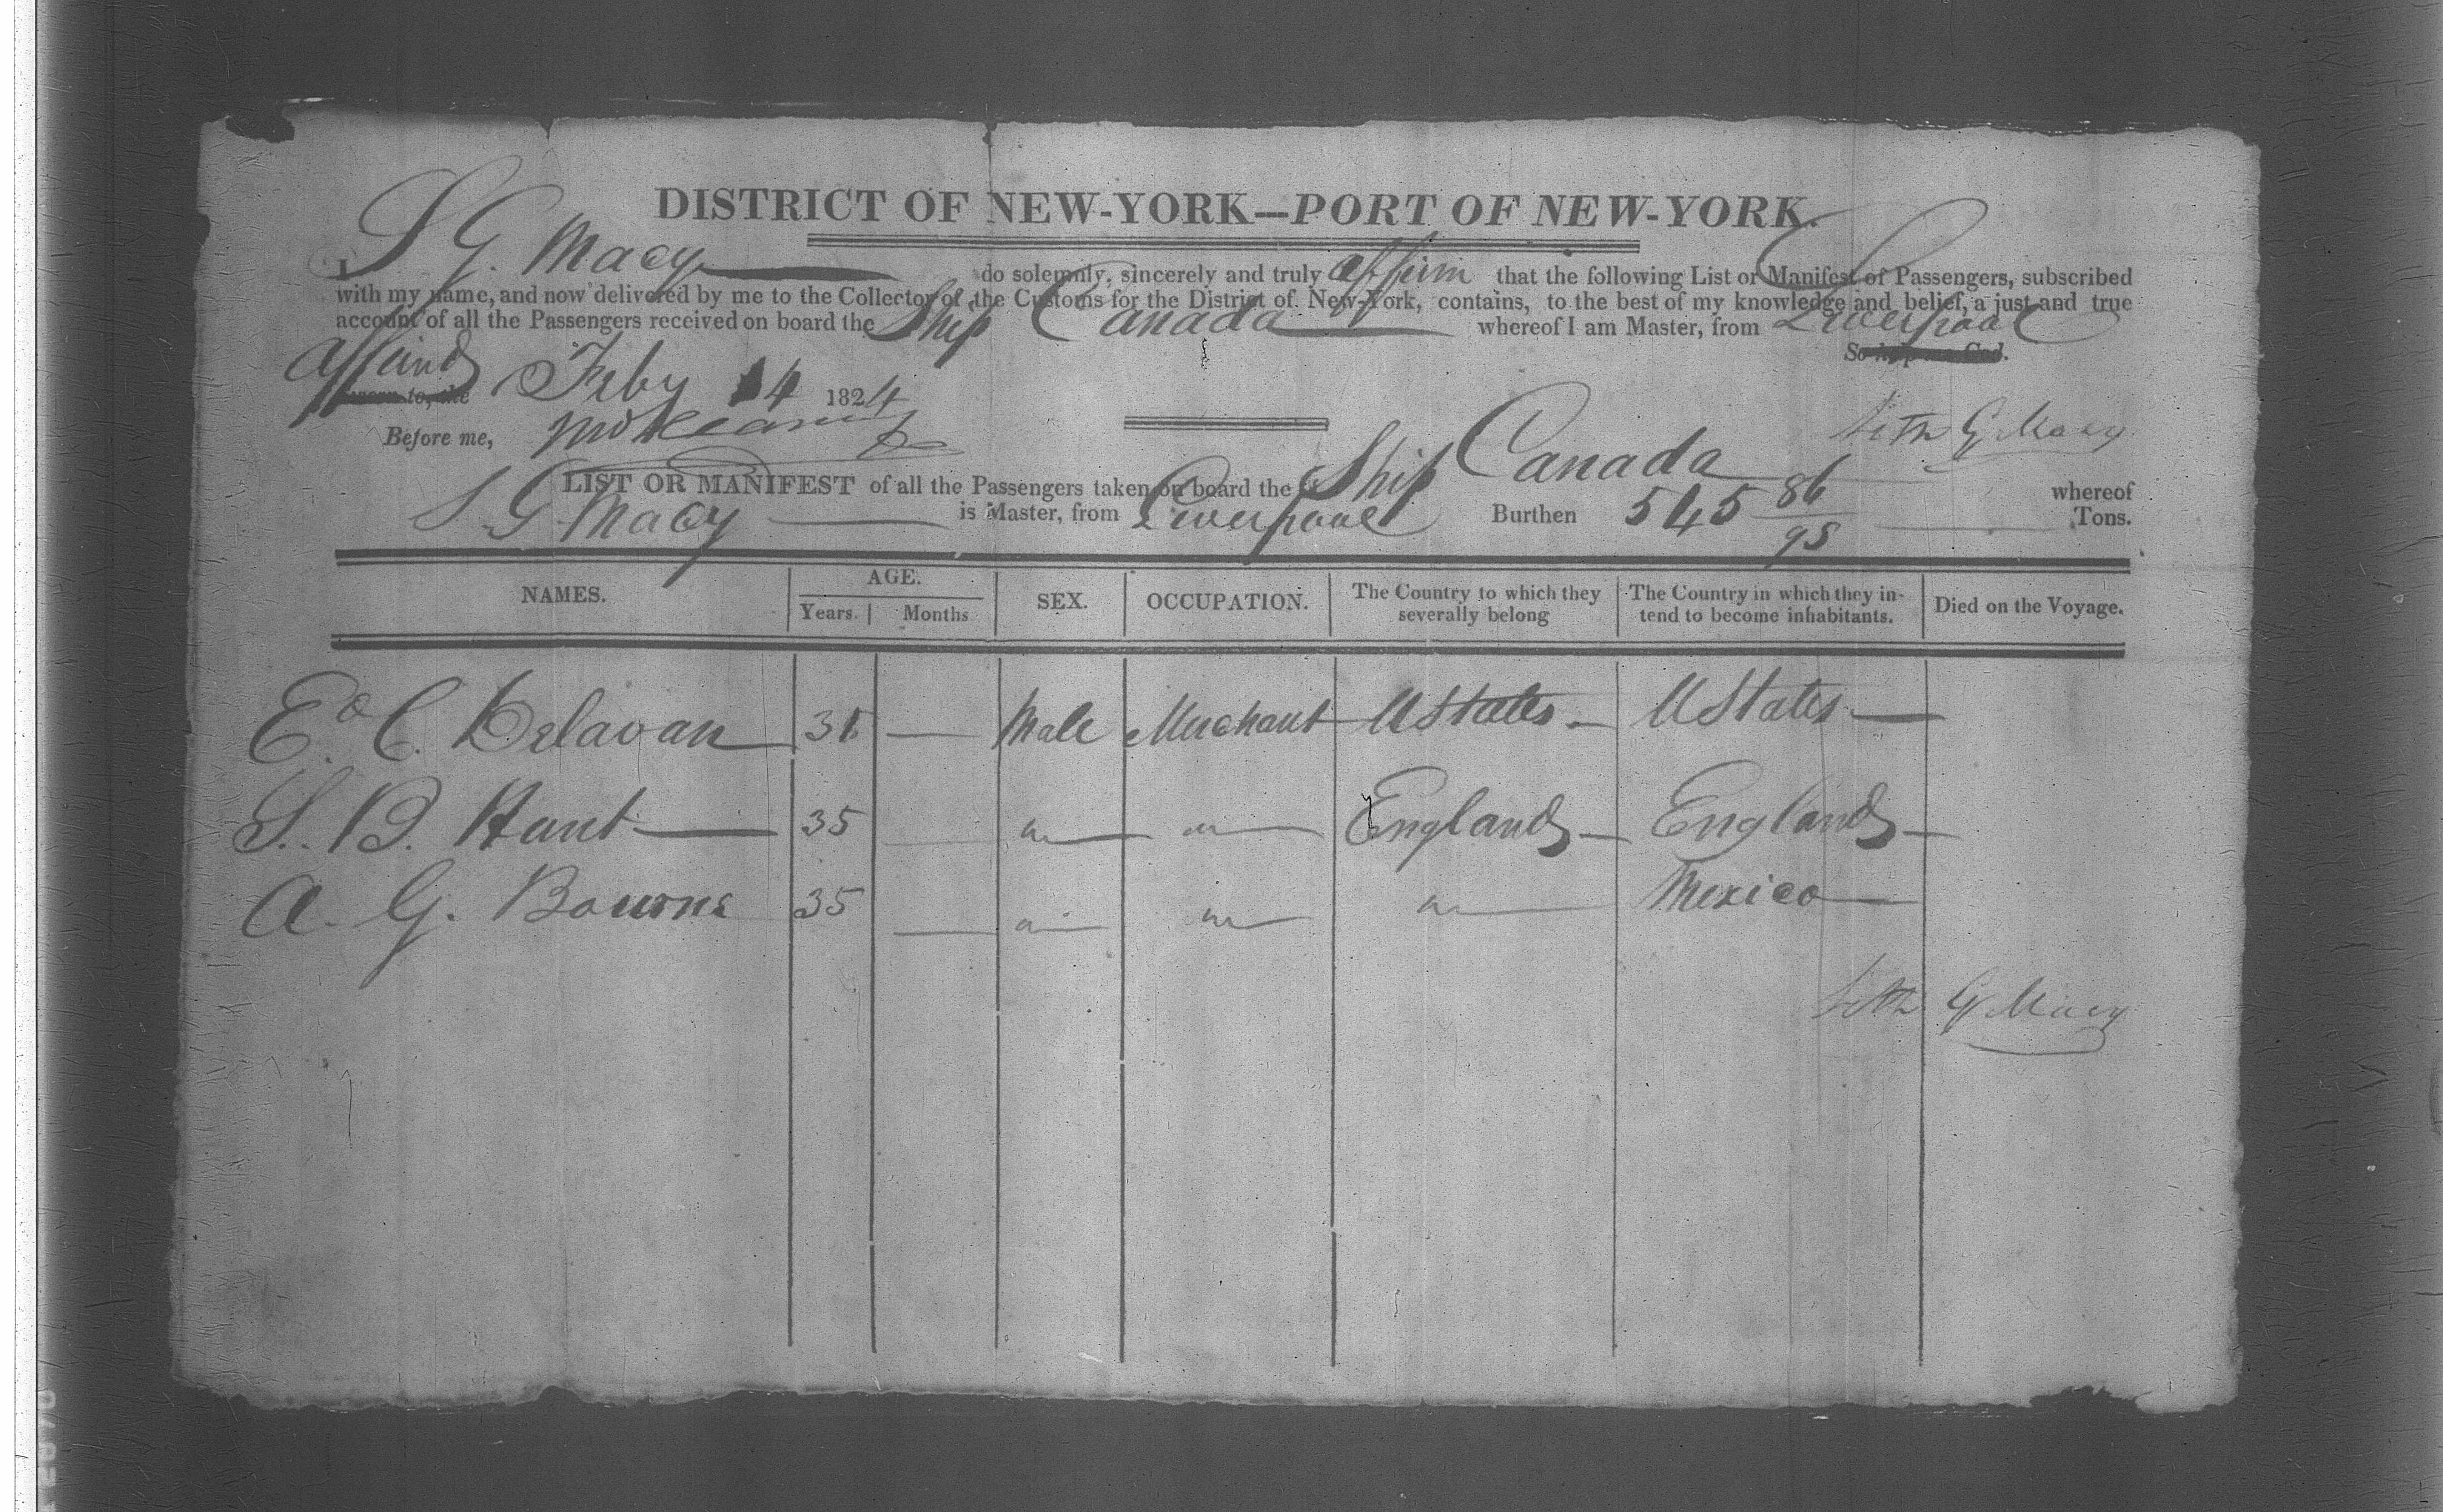 DISTRICT OF NEW-YORK—PORT OF NEW-YORK.
I, S G. Macy do solemnly, sincerely and truly affirm that the following List or Manifest of Passengers, subscribed
with my name, and now delivered by me to the Collector of the Customs for the District of New-York, contains, to the best of my knowledge and belief, a just and true
account of all the Passengers received on board the Ship Canada whereof I am Master, from Liverpool
So help me God.
Affirmd
Sworn to, the Feby 14 1824
Before me,
Seth G Macy
LIST OR MANIFEST of all the Passengers taken on board the Ship Canada whereof
S G Macy is Master, from Liverpool Burthen 545 86/95 Tons.
NAMES. AGE. SEX. OCCUPATION. The Country to which they severally belong The Country in which they intend to become inhabitants. Died on the Voyage.
Years. Months
Ed C. Delavan 31 — Male Merchant UStates — UStates —
S. B. Hunt 35 — " " England — England —
A. G. Bourne 35 — " " " Mexico —
Seth G Macy